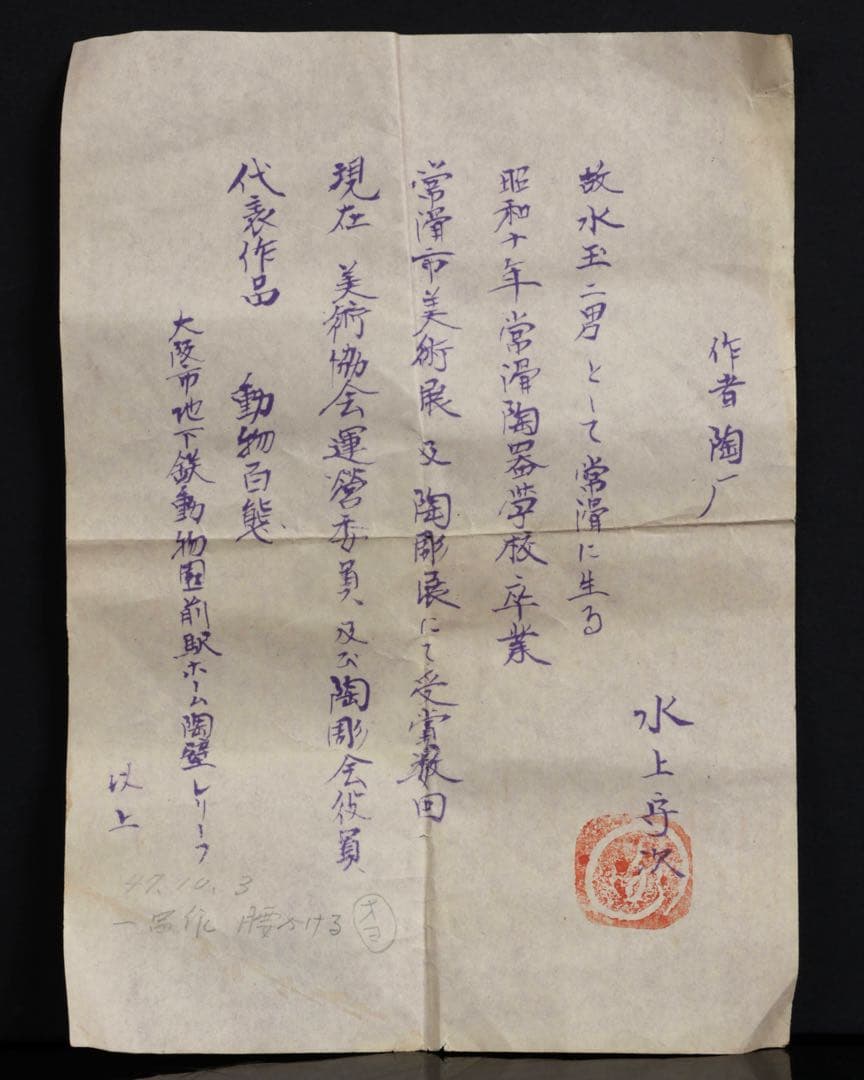 作者陶厂
水上守次
故水玉二男として常滑に生る
昭和十年常滑陶器学校卒業
常滑市美術展及陶彫展にて受賞数回
現在 美術協会運営委員及び陶彫会役員
代表作品 動物百態
大阪市地下鉄動物園前駅ホーム陶壁レリーフ
以上
47.10.3
一品作 腰かける